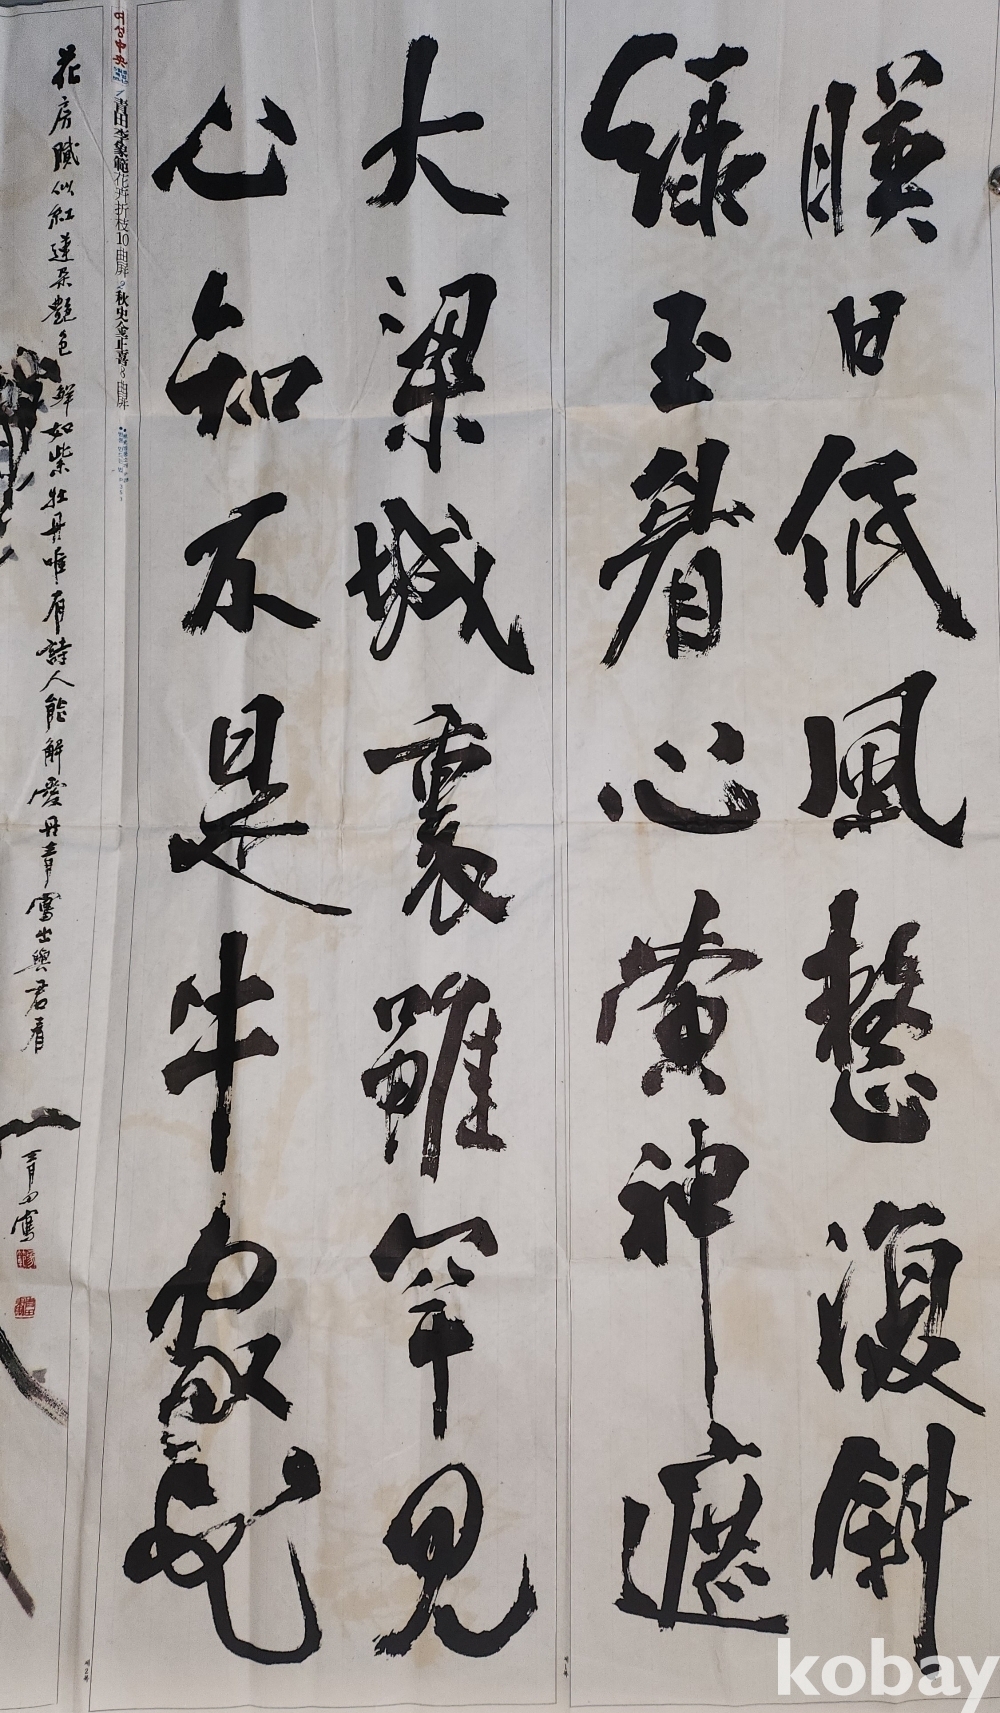 暎日低風整復斜
綠玉眉心黃袖遮
大梁城裏雖罕見
心知不是牛家花
제1폭
제2폭
여성中央
青田李象範花卉折枝10曲屏
秋史金正喜8曲屏
花房膩似紅蓮朶艶色鮮如紫牡丹唯有詩人能解愛丹青寫出與君看
青田寫
kobay